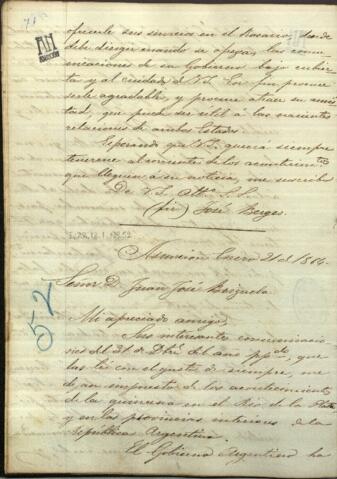 ofrecerle sus servicios en el Rosario, donde
debe disegir cuando se ofezca, las comu-
nicaciones de su Gobierno bajo cubier-
ta y al cuidado de V.S. Por fin procure
serle agradable, y procure atraer su amis-
tad, que puede ser útil á las nacientes
relaciones de ambos Estados.
Esperando que V.S. querrá siempre
tenerme al corriente de los acontecimtos
que lleguen á su noticia, me suscribo
De V.S. Atto. S.S.
(fir) José Berges.
Asuncion Enero 21 de 1864.
Señor D. Juan José Brizuela
Mi apreciado amigo,
Sus interesantes comunicacio-
nes del 31 de Dbre. del año ppdo, que
las leí con el gusto de siempre, me
dejan impuesto de los acontecimientos
de la quincena en el Rio de la Plata
y en las provincias interiores de la
República Argentina.
El Gobierno Argentino ha
52